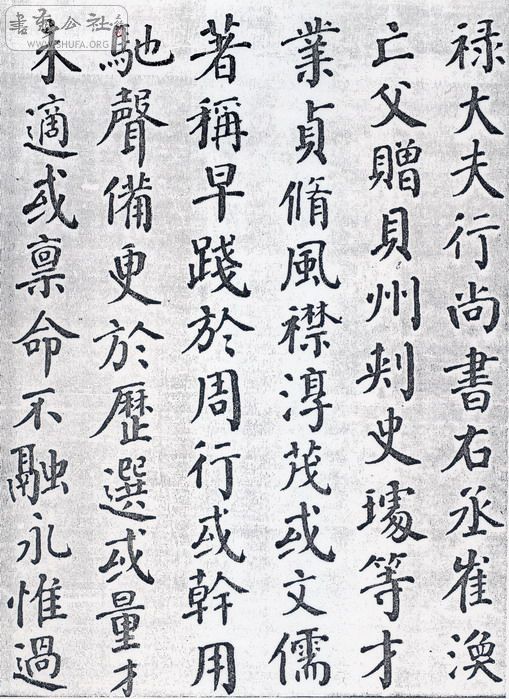 禄大夫行尚書右丞崔渙
亡父贈貝州刾史璩等才
業貞脩風襟淳茂或文儒
著稱早踐於周行或幹用
馳聲備更於歷選或量才
未適或禀命不融永惟過
書法公社
WWW.SHUFA.ORG